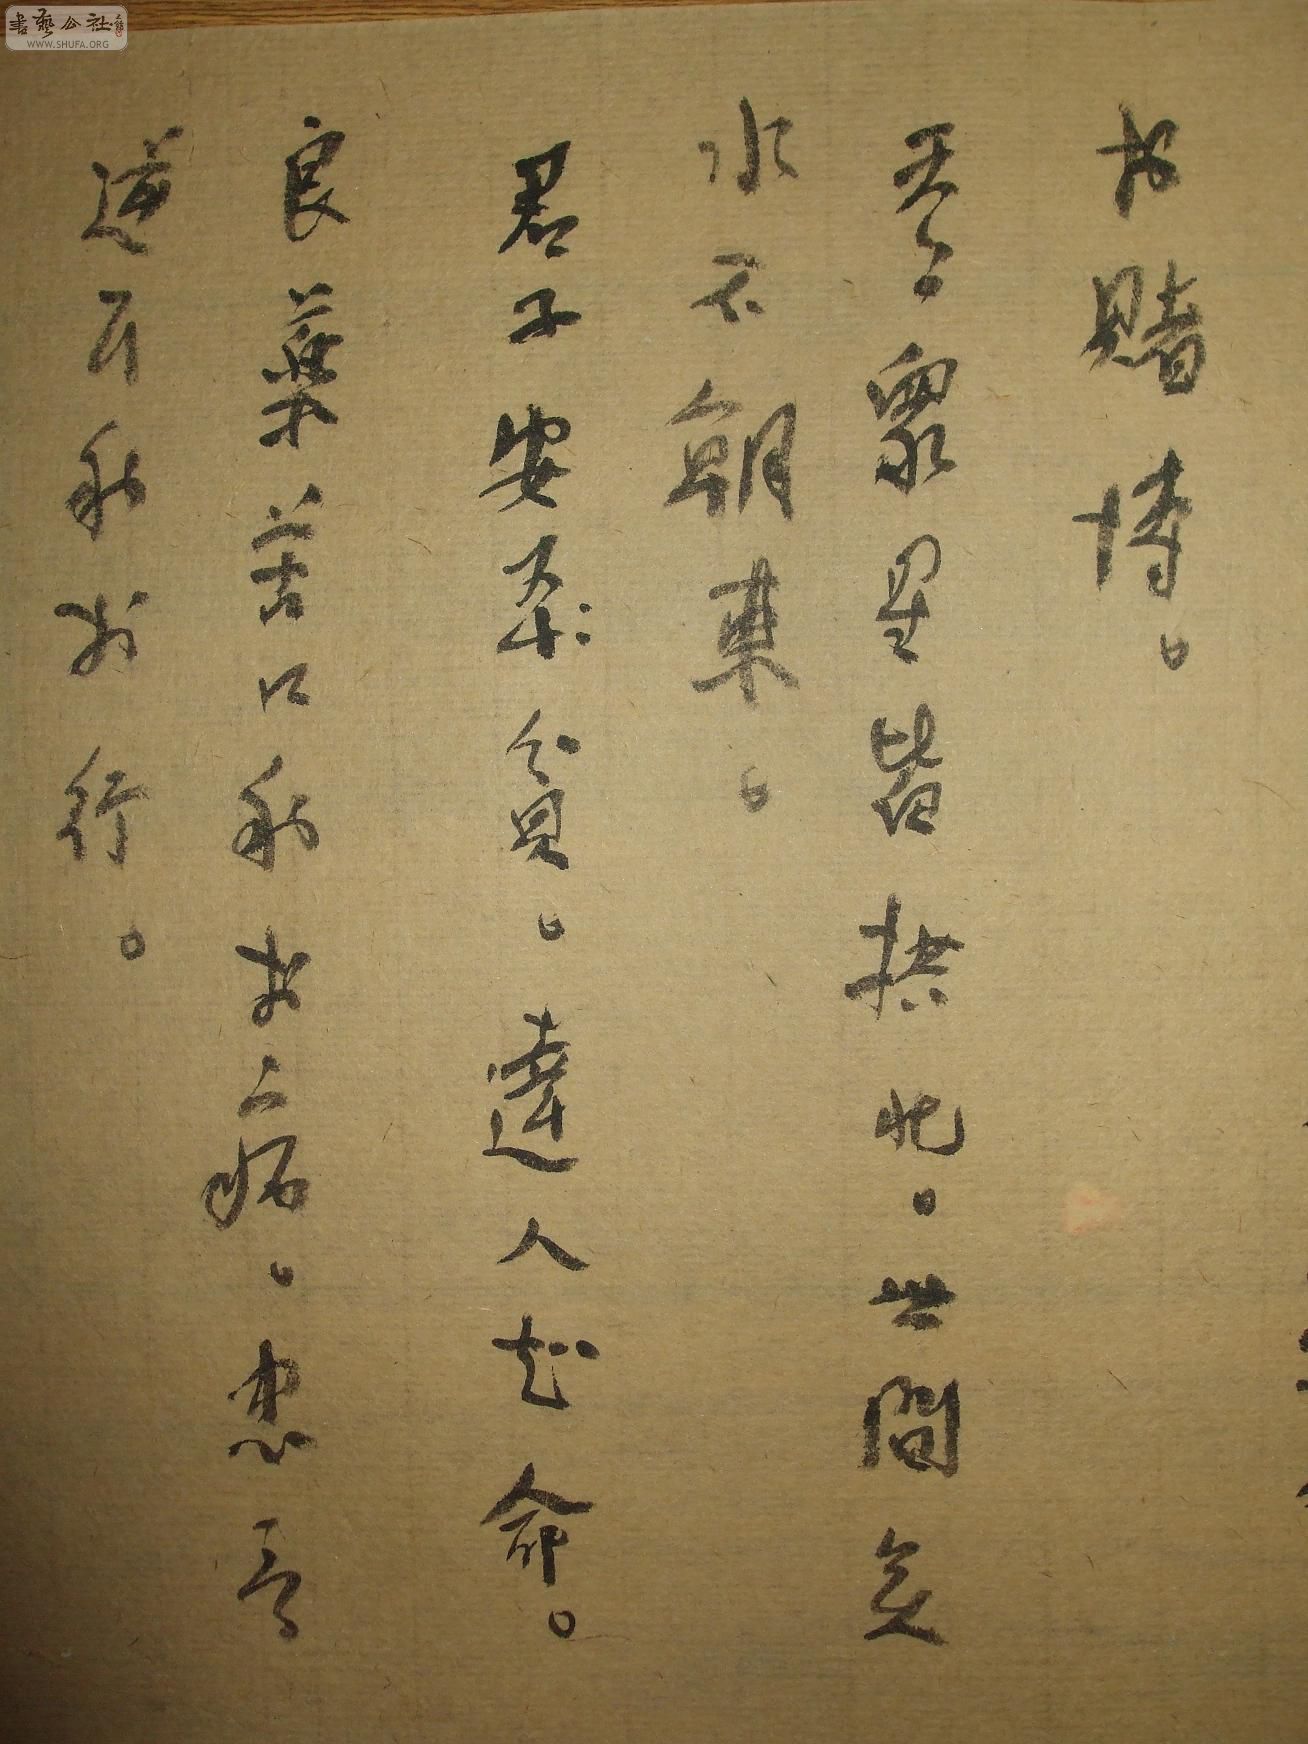 書藝公社
WWW.SHUFA.ORG
於賭博。
天上眾星皆拱北。世間無
水不朝東。
君子安貧。達人知命。
良藥苦口利於病。忠言
逆耳利於行。